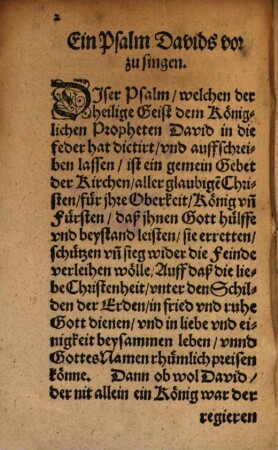 2
Ein Psalm Davids vor
zu singen.
DIser Psalm / welchen der
heilige Geist dem König-
lichen Propheten David in die
feder hat dictirt / vnd auffschrei-
ben lassen / ist ein gemein Gebet
der Kirchen / aller glaubigẽ Chri-
sten / für jhre Oberkeit / König vñ
Fürsten / daß jhnen Gott hülffe
vnd beystand leisten / sie erretten /
schützen vñ sieg wider die Feinde
verleihen wölle / Auff daß die lie-
be Christenheit / vnter den Schil-
den der Erden / in fried vnd ruhe
Gott dienen / vnd in liebe vnd ei-
nigkeit beysammen leben / vnnd
Gottes Namen rhümlich preisen
könne. Dann ob wol David /
der nit allein ein König war der
regieren